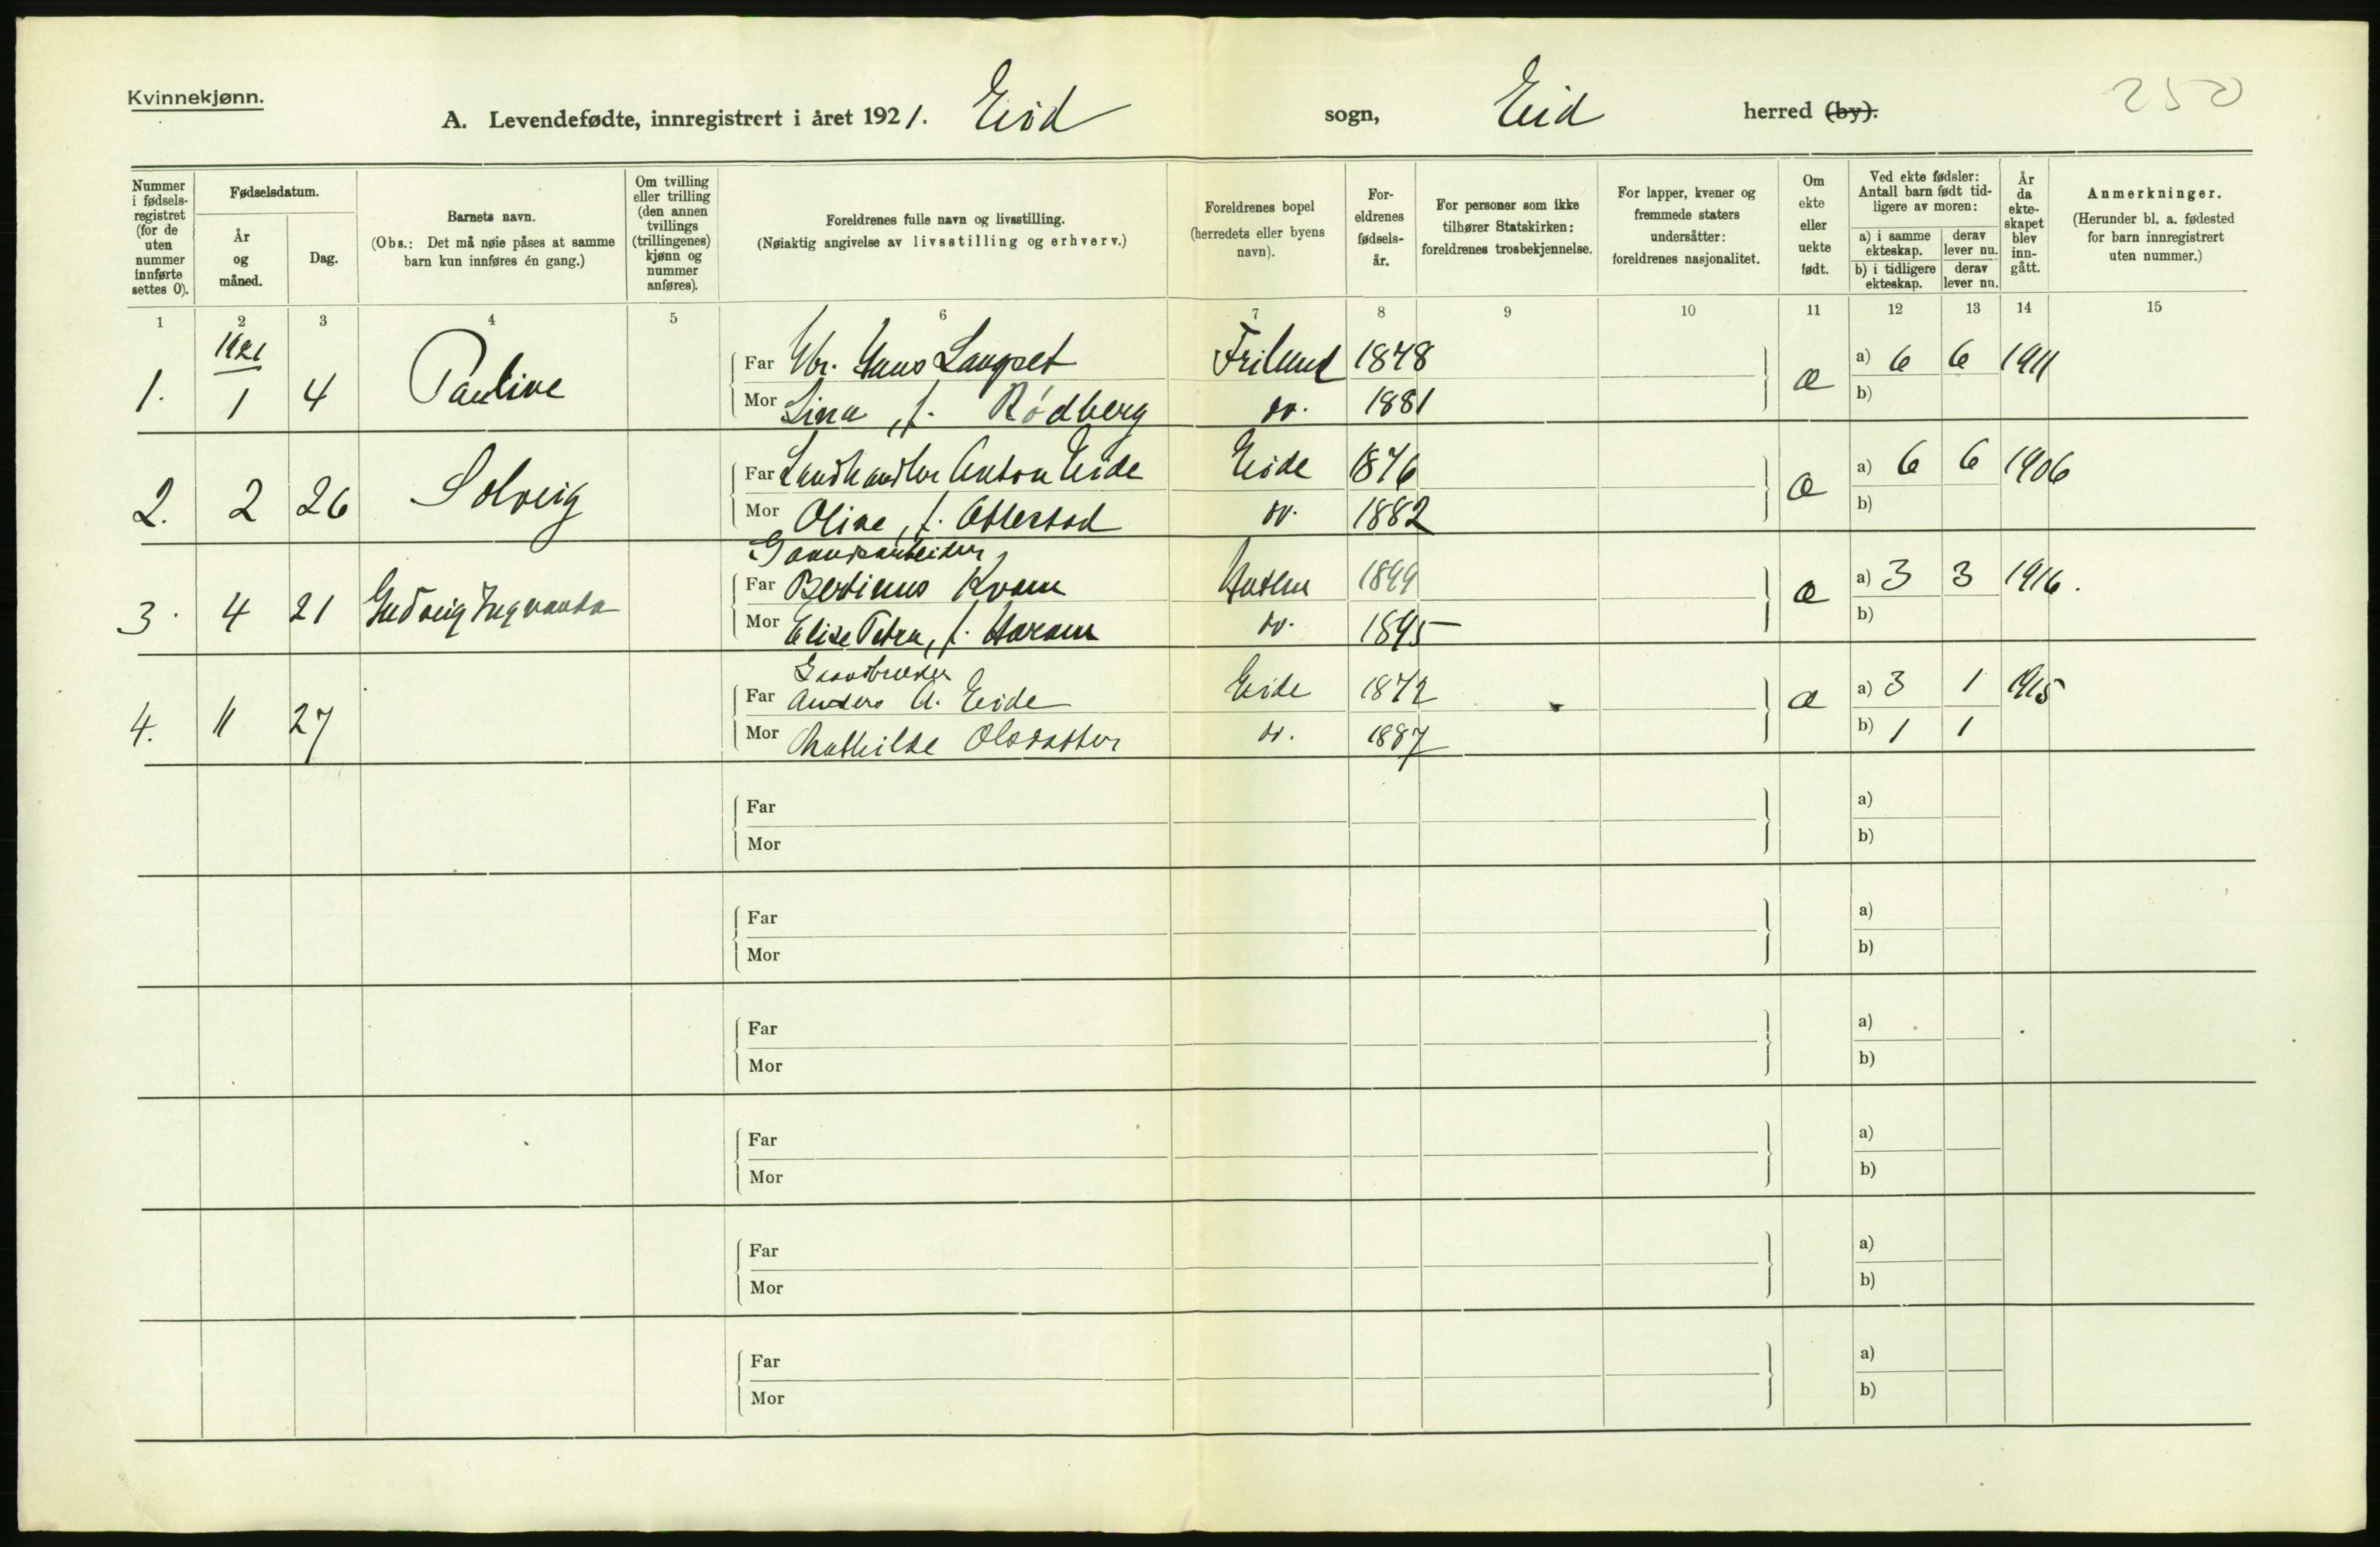 Kvinnekjønn.
250
A. Levendefødte, innregistrert i året 1921. Eid sogn, Eid herred (by).
Nummer i fødsels-registret (for de uten nummer innførte settes 0).
Fødselsdatum.
År og måned.
Dag.
Barnets navn.
(Obs.: Det må nøie påses at samme barn kun innføres én gang.)
Om tvilling eller trilling (den annen tvillings (trillingenes) kjønn og nummer anføres).
Foreldrenes fulle navn og livsstilling.
(Nøiaktig angivelse av livsstilling og erhverv.)
Foreldrenes bopel (herredets eller byens navn).
For-eldrenes fødsels-år.
For personer som ikke tilhører Statskirken: foreldrenes trosbekjennelse.
For lapper, kvener og fremmede staters undersåtter: foreldrenes nasjonalitet.
Om ekte eller uekte født.
Ved ekte fødsler: Antall barn født tid-ligere av moren:
a) i samme ekteskap. derav lever nu.
b) i tidligere ekteskap. derav lever nu.
År da ekte-skapet blev inn-gått.
Anmerkninger.
(Herunder bl. a. fødested for barn innregistrert uten nummer.)
1 2 3 4 5 6 7 8 9 10 11 12 13 14 15
1921
1. 1 4 Pauline
Far Gbr. Hans Langset 1878 æ a) 6 6 1911
Mor Lina, f. Rødberg do. 1881 b)
2. 2 26 Solveig
Far Landhandler Anton Eide Eide 1876 æ a) 6 6 1906
Mor Oline, f. do. 1882 b)
Gaardsarbeider
3. 4 21
Far Bertinus Kvam æ a) 3 3 1916.
Mor Elise Petra, f. Haram do. 1895 b)
Gaardbruker
4. 11 27
Far Anders A. Eide Eide 1872 æ a) 3 1 1915
Mor Mathilde Olsdatter do. 1887 b) 1 1
Far a)
Mor b)
Far a)
Mor b)
Far a)
Mor b)
Far a)
Mor b)
Far a)
Mor b)
Far a)
Mor b)